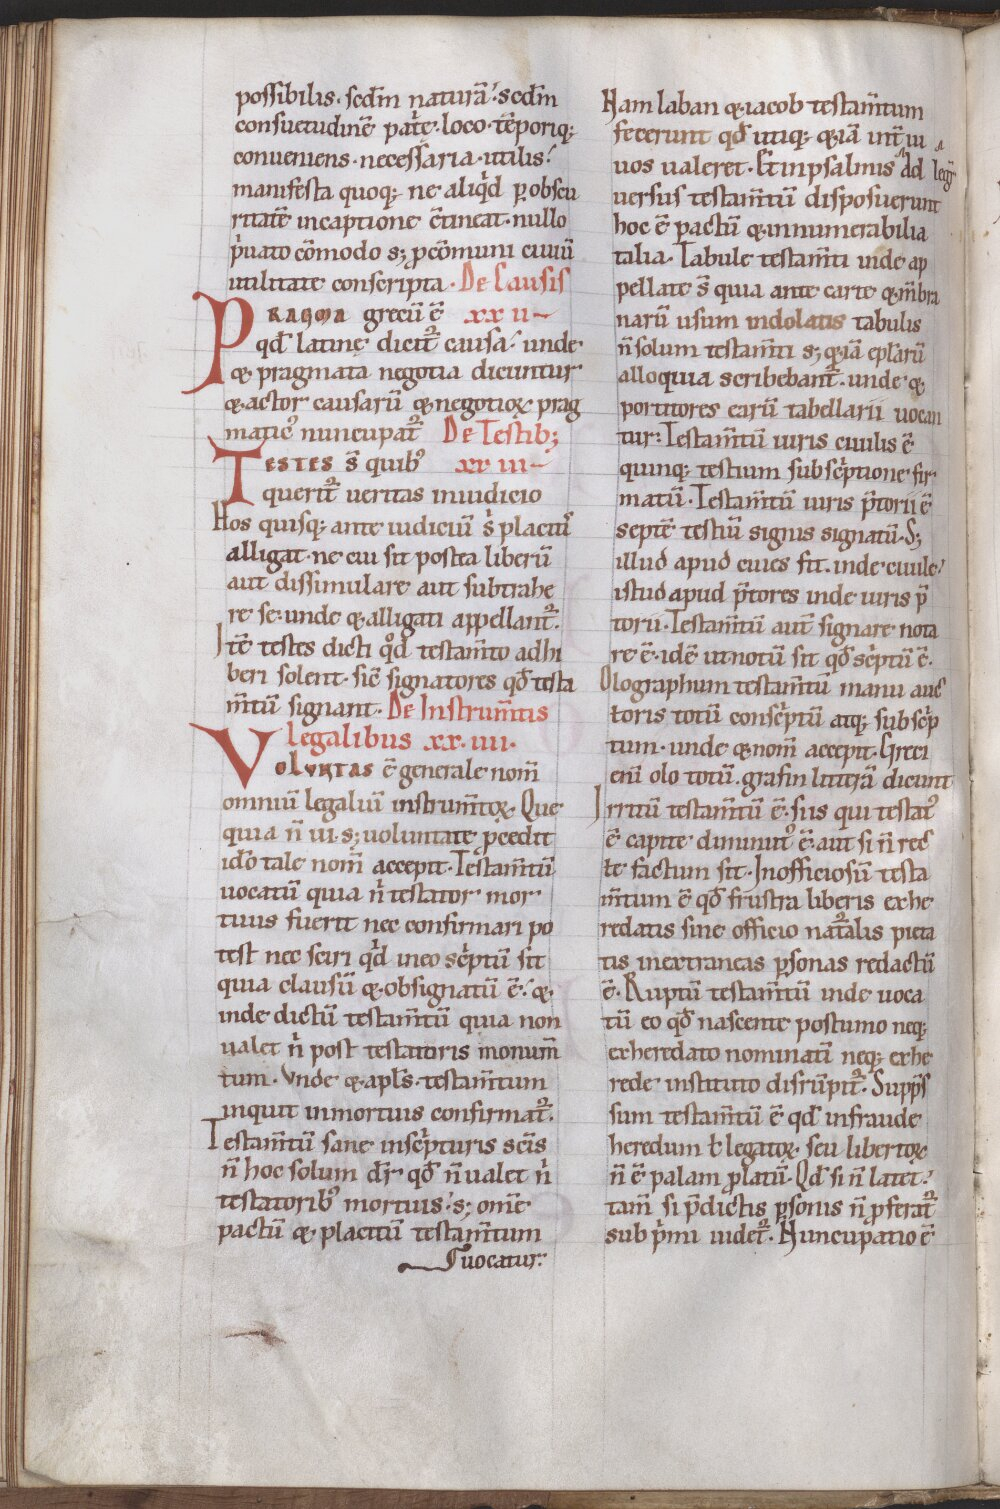 possibilis· scd̄m naturā· scd̄m
consuetudinē pat̄ie· loco· tēporiq;
conueniens· necessaria· utilis·
manifesta quoq; ne aliq̇d ꝑ obscu
ritatē incaptione c̄tineat· nullo
p̄uato cōmodo s; ꝓ cōmuni ciuiū
utilitate conscripta· De Causis
PRAGMA grecū ē xx ii
qđ latine dicit᷑ causa· unde
& pragmata negotia dicuntur
& actor causarū & negotioꝝ prag
maticꝰ nuncupat᷑ De Testib;
TESTES s̄ quibꝰ xx iii
querit᷑ ueritas iniudicio
Hos quisq; ante iudiciū s̄ placitꝰ
alligat· ne cui sit postea liberū
aut dissimulare aut subtrahe
re se· unde & alligati appellant᷑.
Itē testes dicti qd̄ testam̄to adhi
beri solent· sic̄ signatores qđ testa
m̄tū signant· De Instrum̄tis
legalibus xx· iiii·
VOLUNTAS ē generale nom̄
omniū legaliū instrum̄toꝝ· Que
quia n̄ ui· s; uoluntate ꝓcedit
idō tale nom̄ accepit· Testam̄tū
uocatū quia n̄ testator mor
tuus fuerit nec confirmari po
test nec sciri q̇d ineo sc̄ptū sit
quia clausū & obsignatū ē· &
inde dictū testam̄tū quia non
ualet n̄ post testatoris monum̄
tum· Vnde & apl̄s· testam̄tum
inquit inmortuis confirmat᷑.
Testam̄tū sane insc̄pturis sc̄is
n̄ hoc solum dr̄ qđ n̄ ualet n̄
testatoribꝰ mortuis· s; om̄e
pactū & placitū testam̄tum
uocatur·
Nam laban & iacob testam̄tum
fecerunt qđ utiq; & iā int̄ ui
uos ualeret· Et inpsalmis Ad legr̄
uersus testam̄tū disposuerunt
hoc ē pactū & innumerabilia
talia· Tabule testam̄ti inde ap
pellate s̄ quia ante carte & m̄bra
narū usum indolatis tabulis
n̄ solum testam̄ti s; & iā epl̄arū
alloquia scribebant᷑· unde &
portitores earū tabellarii uocan
tur· Testam̄tū iuris ciuilis ē
quinq; testium subsc̄ptione fir
matū· Testam̄tū iuris p̄torii ē
septē testiū signis signatū· S;
illud apud ciues fit· inde ciuile·
istud apud p̄tores inde iuris p̄
torii· Testam̄tū aut̄ signare nota
re ē· idē ut notū sit qđ sc̄ptū ē·
Olographum testam̄tū manu auc
toris totū consc̄ptū atq; subsc̄p
tum· unde & nom̄ accepit· Greci
eni̅ olo totū· grafin litterā dicunt
Irritū testam̄tū ē· siis qui testatꝰ
ē capite diminutꝰ ē· aut si n̄ rec
te factum sit· Inofficiosū testa
m̄tum ē qđ frustra liberis exhe
redatis sine officio nat᷑alis pieta
tis inextraneas ꝑsonas redactū
ē· Ruptū testam̄tū inde uoca
tū eo qđ nascente postumo neq;
exheredato nominatī neq; exhe
rede instituto disrūpit᷑· Supp̄s
sum testam̄tū ē qđ infraude
heredum ł legatoꝝ seu libertoꝝ
n̄ ē palam ꝓlatū· Qđ si n̄ latet·
tam̄ si p̄dictis ꝑsonis n̄ ꝓferat᷑
sub p̄mi uidet᷑· Nuncupatio ē